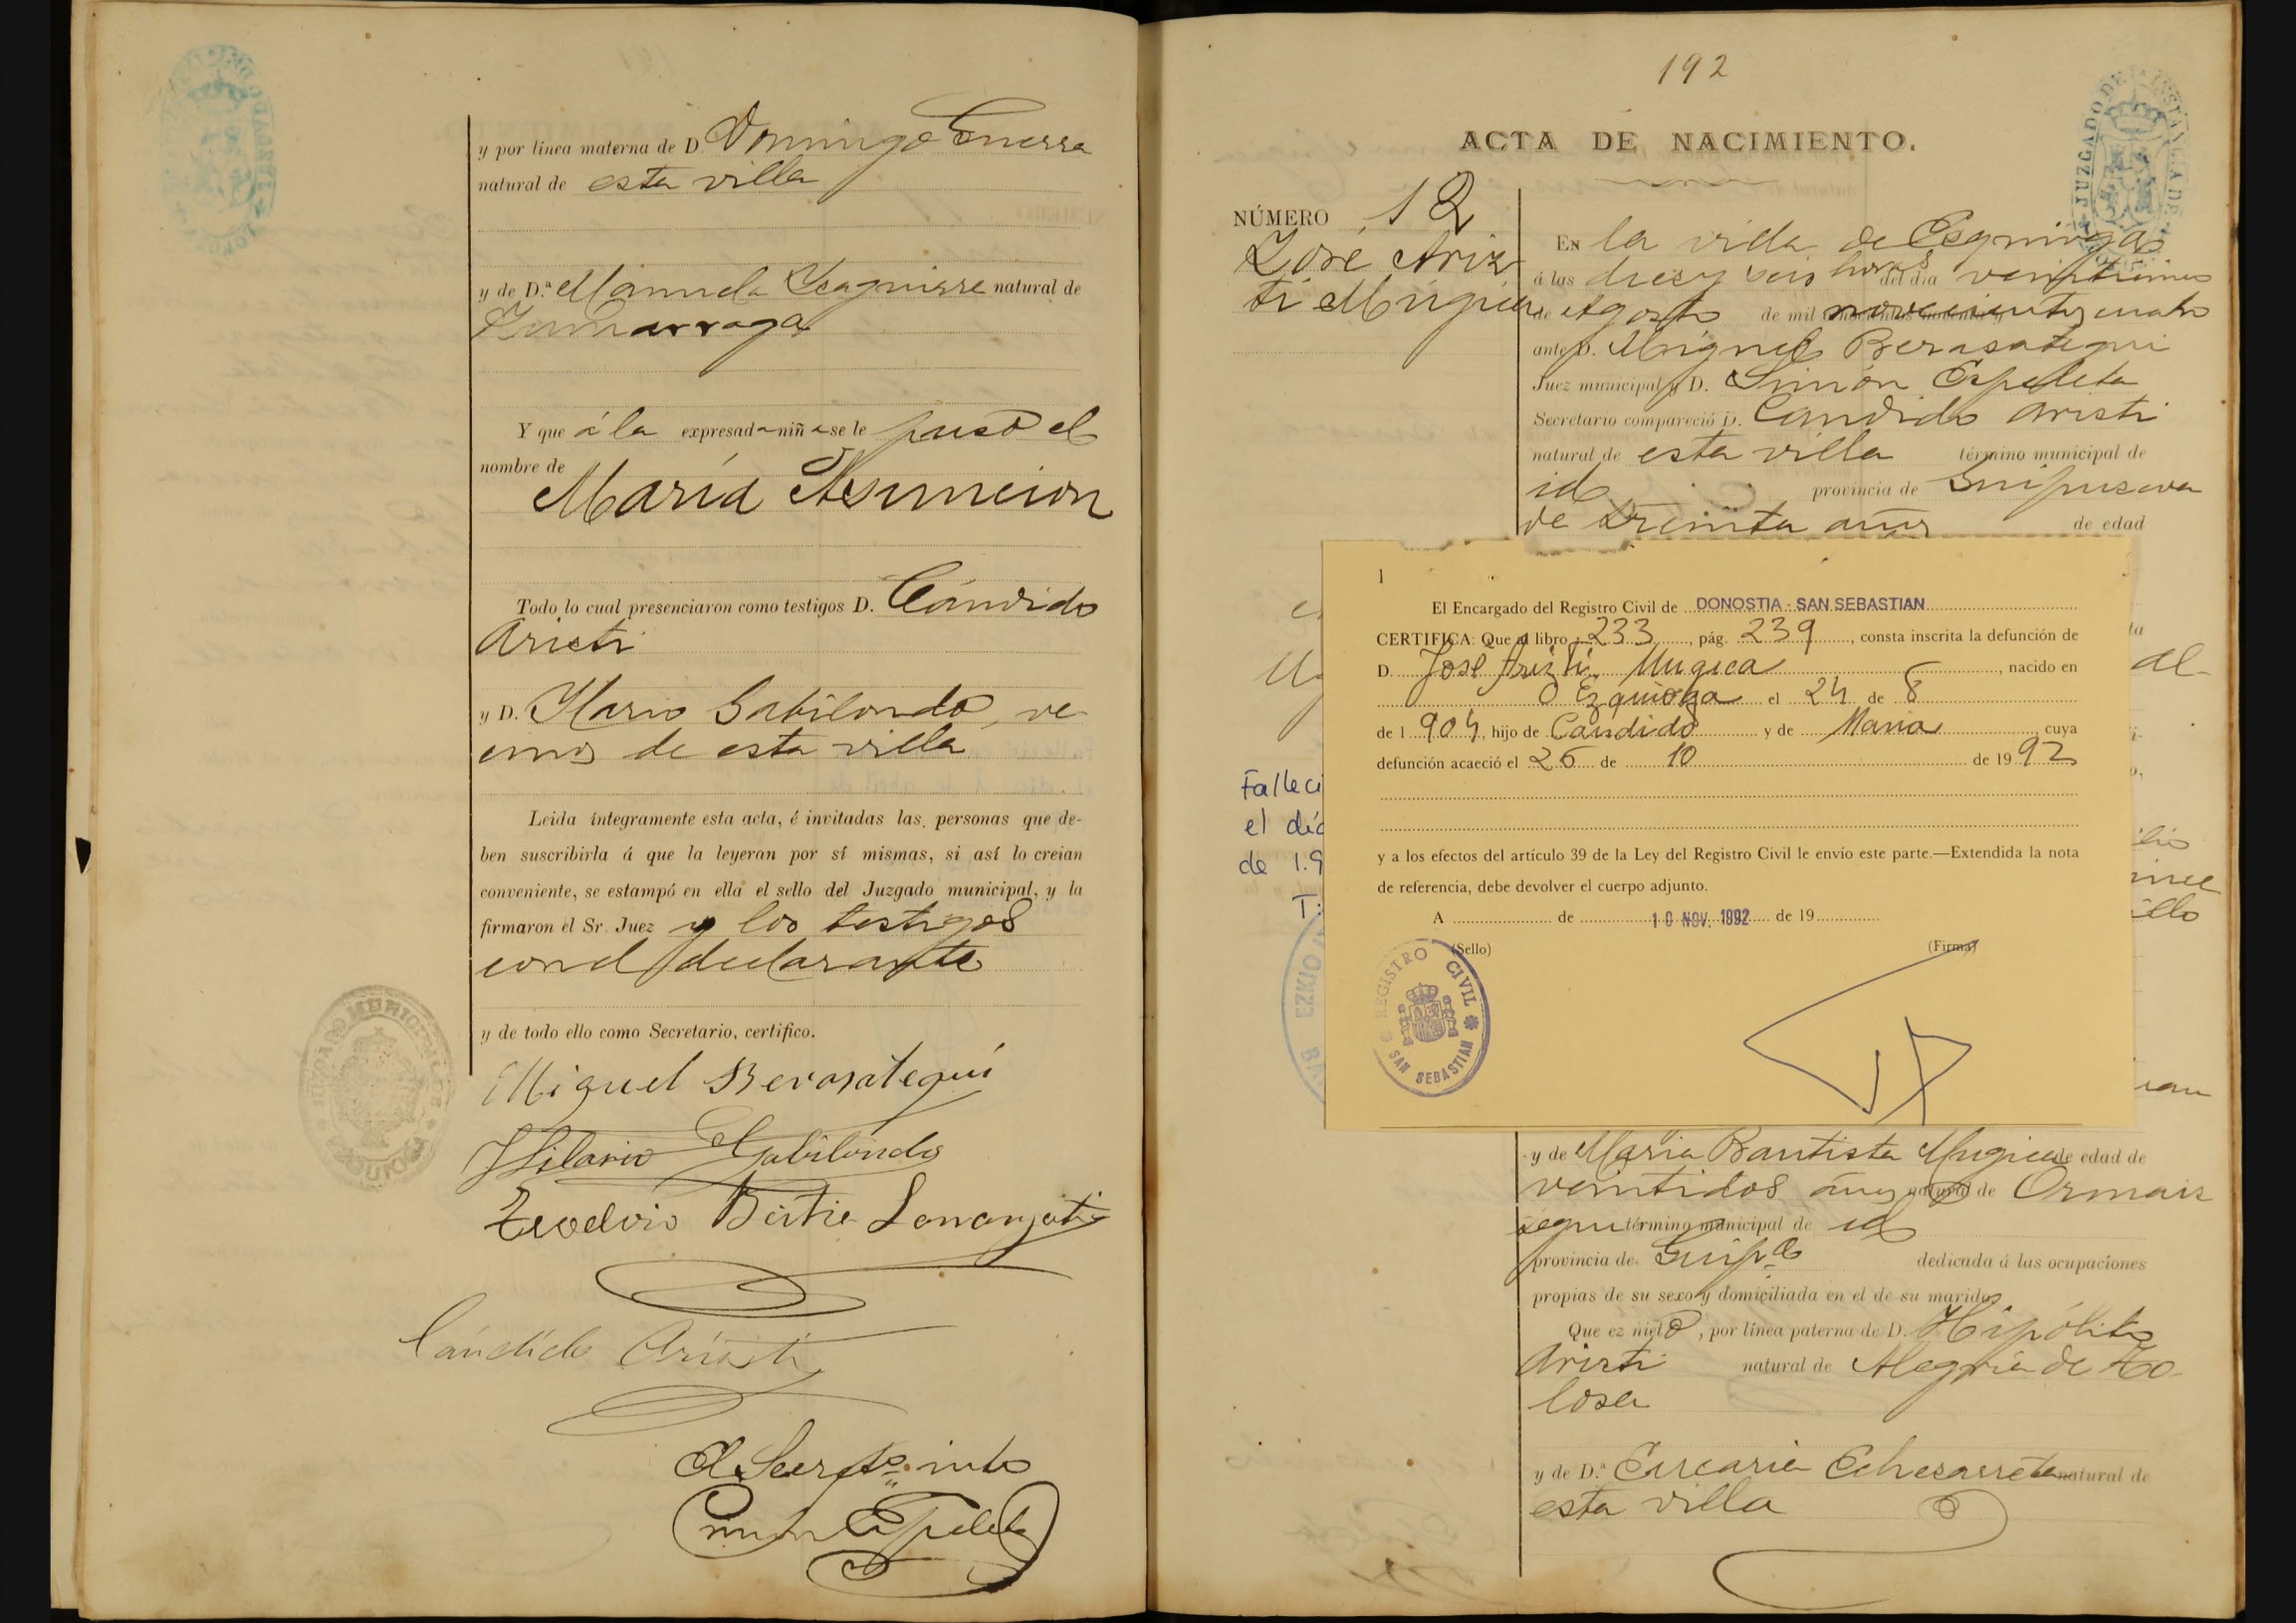 y por línea materna de D. Domingo Guerra
natural de esta villa
y de D.ª Manuela Yzaguirre natural de
Zumarraga
Y que á la expresada niña se le puso el
nombre de
María Asuncion
Todo lo cual presenciaron como testigos D. Cándido
Aristi
y D. Ylario Gabilondo, ve
cinos de esta villa
Leida íntegramente esta acta, é invitadas las personas que de-
ben suscribirla á que la leyeran por sí mismas, si así lo creian
conveniente, se estampó en ella el sello del Juzgado municipal, y la
firmaron el Sr. Juez y los testigos
con el declarante
y de todo ello como Secretario, certifico.
Miguel Berasategui
Hilario Gabilondo
Teodoro
Cándido Aristi
El Secret.º
Simon Espeleta
192
ACTA DE NACIMIENTO.
NÚMERO 12
José Ariz
ti Múgica
En la villa de Ezquioga
á las diez y seis horas del dia veinticinco
de Agosto de mil novecientos cuatro
ante D. Miguel Berasategui
Juez municipal y D. Simón Espeleta
Secretario compareció D. Candido Aristi
natural de esta villa término municipal de
id provincia de Guipuzcoa
de treinta años de edad
1
El Encargado del Registro Civil de DONOSTIA - SAN SEBASTIAN
CERTIFICA: Que al libro 233, pág. 239, consta inscrita la defunción de
D. Jose Aristi Mugica, nacido en
Ezquioga el 24 de 8
de 1 904, hijo de Candido y de Maria cuya
defunción acaeció el 26 de 10 de 19 92
y a los efectos del artículo 39 de la Ley del Registro Civil le envío este parte.—Extendida la nota
de referencia, debe devolver el cuerpo adjunto.
A de 10 NOV. 1992 de 19
(Sello) (Firma)
REGISTRO CIVIL
SAN SEBASTIAN
Falleci
el día
de 1.9
EZKIO
y de Maria Bautista Mugica de edad de
veintidos años natural de Ormaiz
tegui término municipal de id
provincia de Guip.ª dedicada á las ocupaciones
propias de su sexo y domiciliada en el de su marido
Que ez nieto, por línea paterna de D. Hipólito
Aristi natural de Alegría de To-
losa
y de D.ª Echezarreta natural de
esta villa